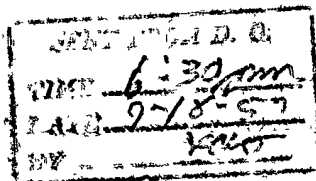 SENT FROM D. O.
TIME 6:30 pm
DATE 9-18-57
BY